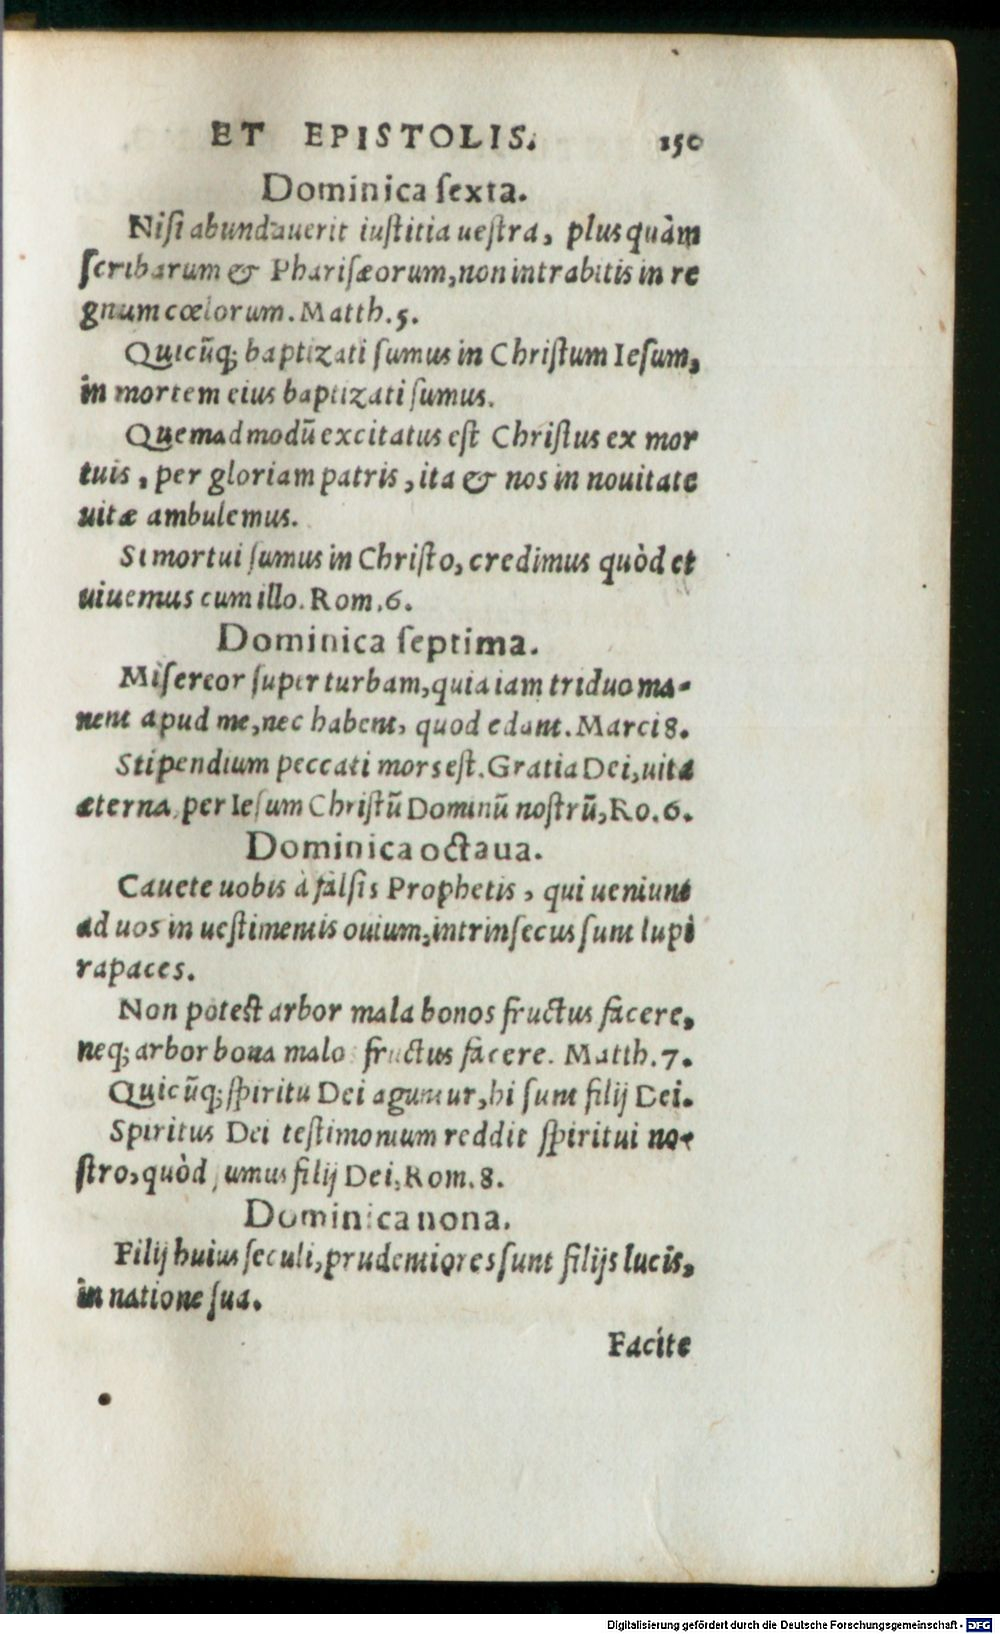 ET EPISTOLIS. 150
Dominica ſexta.
Niſi abundauerit iuſtitia ueſtra, plus quàm
ſcribarum & Phariſæorum, non intrabitis in re
gnum cœlorum. Matth. 5.
Quicūq; baptizati ſumus in Chriſtum Ieſum,
in mortem eius baptizati ſumus.
Quemadmodū excitatus eſt Chriſtus ex mor
tuis, per gloriam patris, ita & nos in nouitate
uitæ ambulemus.
Si mortui ſumus in Chriſto, credimus quòd et
uiuemus cum illo. Rom. 6.
Dominica ſeptima.
Miſereor ſuper turbam, quia iam triduo ma-
nent apud me, nec habent, quod edant. Marci 8.
Stipendium peccati mors eſt. Gratia Dei, uita
æterna, per Ieſum Chriſtū Dominū noſtrū, Ro. 6.
Dominica octaua.
Cauete uobis à falſis Prophetis, qui ueniunt
ad uos in ueſtimentis ouium, intrinſecus ſunt lupi
rapaces.
Non poteſt arbor mala bonos fructus facere,
neq; arbor bona malos fructus facere. Matth. 7.
Quicūq; ſpiritu Dei aguntur, hi ſunt filij Dei.
Spiritus Dei teſtimonium reddit ſpiritui no-
ſtro, quòd ſumus filij Dei, Rom. 8.
Dominica nona.
Filij huius ſeculi, prudentiores ſunt filijs lucis,
in natione ſua.
Facite
Digitalisierung gefördert durch die Deutsche Forschungsgemeinschaft - DFG